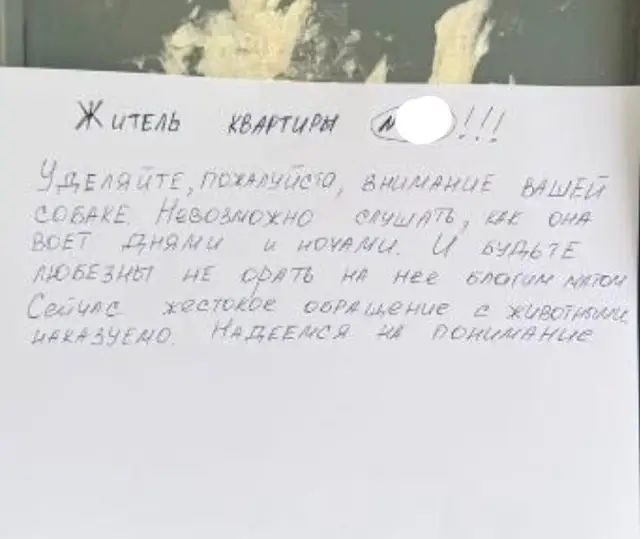 Житель квартиры №!!!
Уделяйте, пожалуйста, внимание вашей
собаке. Невозможно слушать, как она
воет днями и ночами. И будьте
любезны не орать на нее благим матом
Сейчас жестокое обращение с животными
наказуемо. Надеемся на понимание